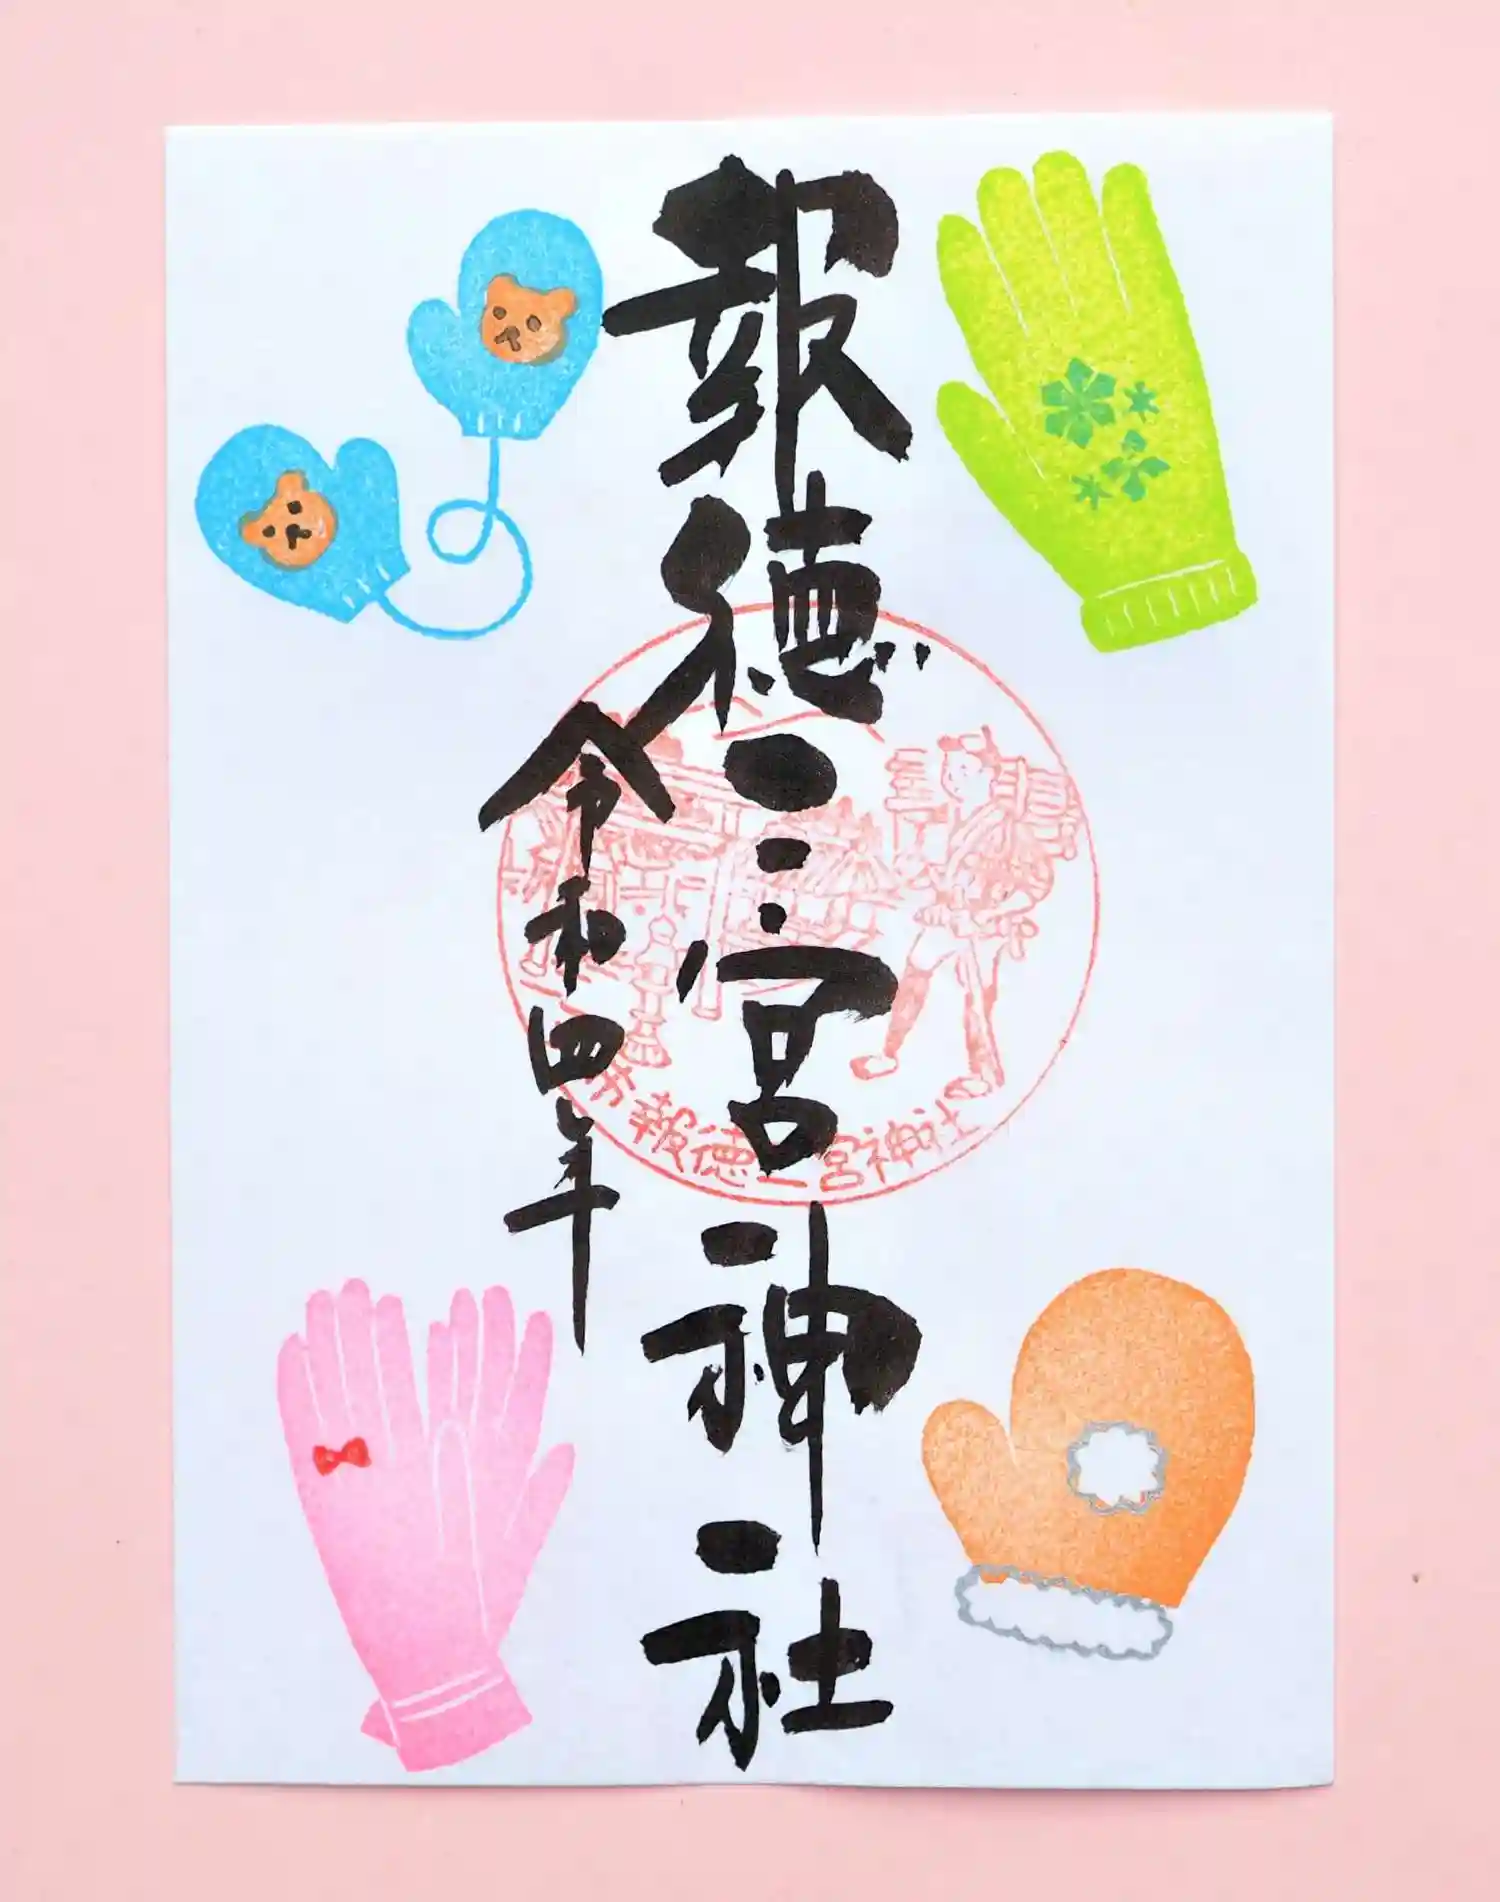 報徳二宮神社
令和四年
報徳二宮神社